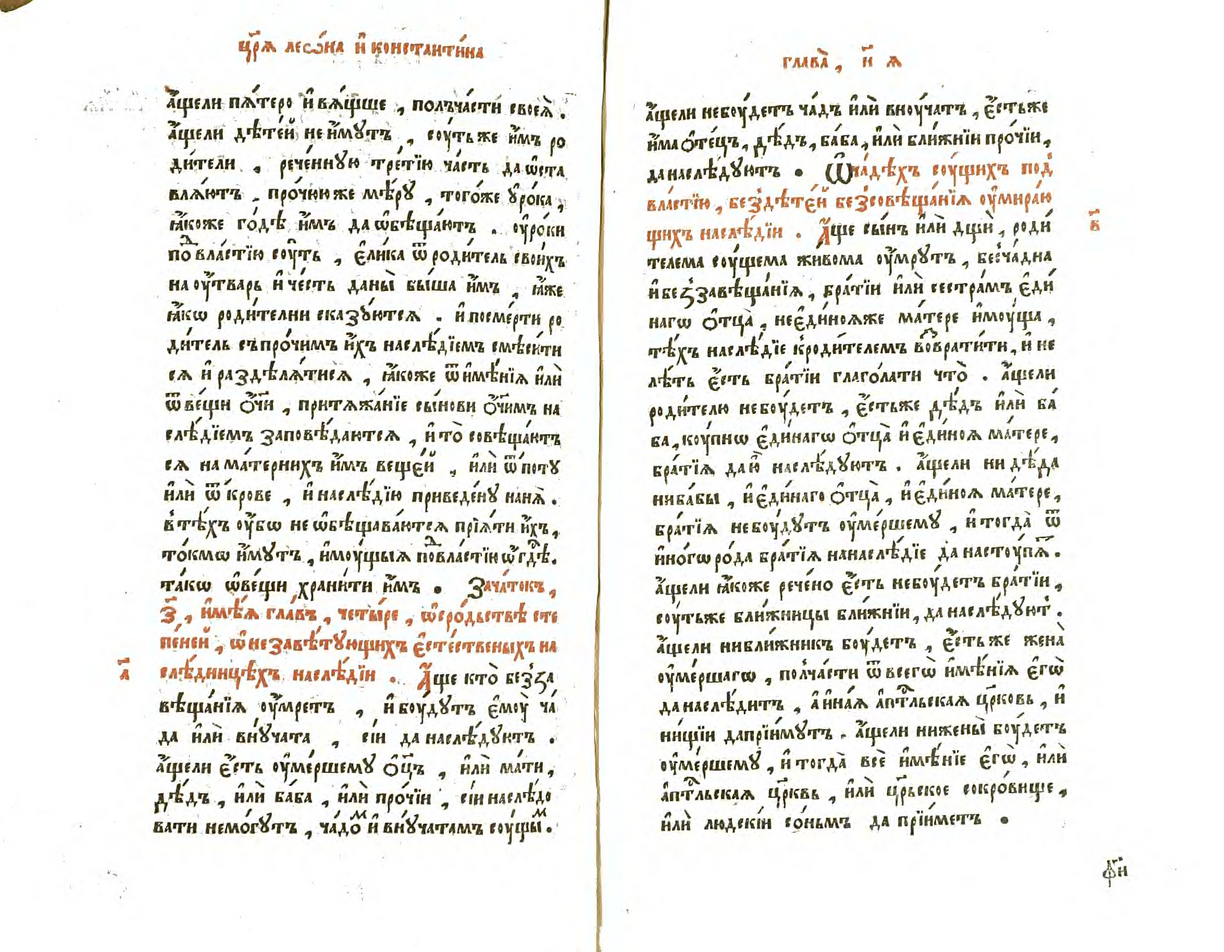 цр҃ѧ леѡ́на и҆ константи́на
а҆́щели пѧ́теро и҆ вѧ́щше , полъча́сти своеѧ̀ .
а҆́щели дѣте́й не и҆́мутъ , соу́тьже и҆́мъ ро
ди́тели , рече́нную тре́тїю ча́сть да ѡ҆ста
влѧ́ютъ . про́чююже мѣ́ру , того́же у҆ро́ка ,
ꙗ҆́коже го́дѣ и҆́мъ да ѡ҆бѣща́ютъ . оу҆ро́ки
по́властїю соу́ть , є҆ли́ка ѿ роди́тель свои́хъ
на оу҆́тварь и҆ че́сть даны̀ бы́ша и҆́мъ , ꙗ҆́же
ꙗ҆́кѡ роди́телни сказꙋ́ютсѧ . и҆ посме́рти ро
ди́тель съпро́чимъ и҆́хъ наслѣ́дїемъ смѣси́ти
сѧ и҆ раздѣлѧ́тисѧ , ꙗ҆́коже ѿ и҆мѣ́нїѧ и҆лѝ
ѿ ве́щи ѻ҆́чи , притѧжа́нїе сы́нови ѻ҆́чимъ на
слѣ́дїемъ заповѣ́даютсѧ , и҆ то̀ совѣща́ютъ
сѧ на ма́тернихъ и҆́мъ веще́й , и҆лѝ ѿ по́ту
и҆лѝ ѿ кро́ве , и҆ наслѣ́дїю приведе́ну нанѧ̀ .
в тѣ́хъ оу҆́бѡ не ѡ҆бѣщава́ютсѧ прїѧ́ти и҆́хъ ,
то́кмѡ и҆́мутъ , и҆моу́щыѧ по́властїи ѡ҆гдѣ̀ .
та́кѡ ѡ҆ ве́щи храни́ти и҆́мъ . Зача́токъ ,
з҃ , и҆мѣ́ѧ гла́въ , четы́ре , ѡ҆ сро́дьствѣ сте
пе́ней , ѡ҆ незавѣ́тующихъ є҆сте́ственыхъ на
а҃
слѣ́дницѣхъ наслѣ́дїи . А҆́ще кто̀ безза
вѣща́нїѧ оу҆́мретъ , и҆ боу́дутъ є҆моу̀ ча́
да и҆лѝ вну́чата , сїѝ да наслѣ́дуютъ .
а҆́щели є҆́сть оу҆ме́ршему ѻ҆ц҃ъ , и҆лѝ ма́ти ,
дѣ́дъ , и҆лѝ ба́ба , и҆лѝ про́чїи , сїѝ наслѣ́до
вати немо́гутъ , ча́дом и҆ вну́чатамъ соу́щым .
глава̀ , н҃ ѧ
а҆́щели небоу́детъ ча́дъ и҆лѝ вноу́чатъ , є҆́стьже
и҆́ма ѻ҆те́цъ , дѣ́дъ , ба́ба , и҆лѝ бли́жнїи про́чїи ,
да наслѣ́дуютъ . Ѡ ча́дѣхъ соу́щихъ под
вла́стїю , бездѣте́й безсовѣща́нїѧ оу҆мира́ю
в҃
щихъ наслѣ́дїи . А҆́ще сы́нъ и҆лѝ дщѝ , роди́
телема соу́щема жи́вома оу҆́мрутъ , бесча́дна
и҆ беззавѣща́нїѧ , бра́тїи и҆лѝ сестра́мъ є҆ди́
нагѡ ѻ҆тца̀ , не є҆ди́ноѧже ма́тере и҆моу́ща ,
тѣ́хъ наслѣ́дїе кроди́телем вовврати́ти , и҆ не
лѣ́ть є҆́сть бра́тїи глаго́лати что̀ . а҆́щели
роди́телю небоу́детъ , є҆́стьже дѣ́дъ и҆лѝ ба́
ба , коу́пнѡ є҆ди́нагѡ ѻ҆тца̀ и҆ є҆ди́ноѧ ма́тере ,
бра́тїѧ да ю҆̀ наслѣ́дуютъ . а҆́щели ни дѣ́да
ниба́бы , и҆ є҆ди́наго ѻ҆тца̀ , и҆ є҆ди́ноѧ ма́тере ,
бра́тїѧ небоу́дутъ оу҆ме́ршему , и҆ тогда̀ ѿ
и҆но́гѡ ро́да бра́тїѧ нанаслѣ́дїе да насто́упѧт .
а҆́щели ꙗ҆́коже рече́но є҆́сть небоу́детъ бра́тїи ,
соу́тьже бли́жницы бли́жнїи , да наслѣ́дуют .
а҆́щели нибли́жникъ боу́детъ , є҆́сть же жена̀
оу҆ме́ршагѡ , полча́сти ѿ всегѡ̀ и҆мѣ́нїѧ є҆гѡ̀
да наслѣ́дитъ , а҆ и҆на́ѧ а҆пⷭ҇тльскаѧ цр҃ковь , и҆
ни́щїи даприи́мутъ . а҆́щели нижены̀ боу́детъ
оу҆ме́ршему , и҆ тогда̀ всѐ и҆мѣ́нїе є҆гѡ̀ , и҆лѝ
а҆пⷭ҇тльскаѧ цр҃квь , и҆лѝ цр҃ьское сокро́вище ,
и҆лѝ людскі́и со́ньмъ да прїи́метъ .